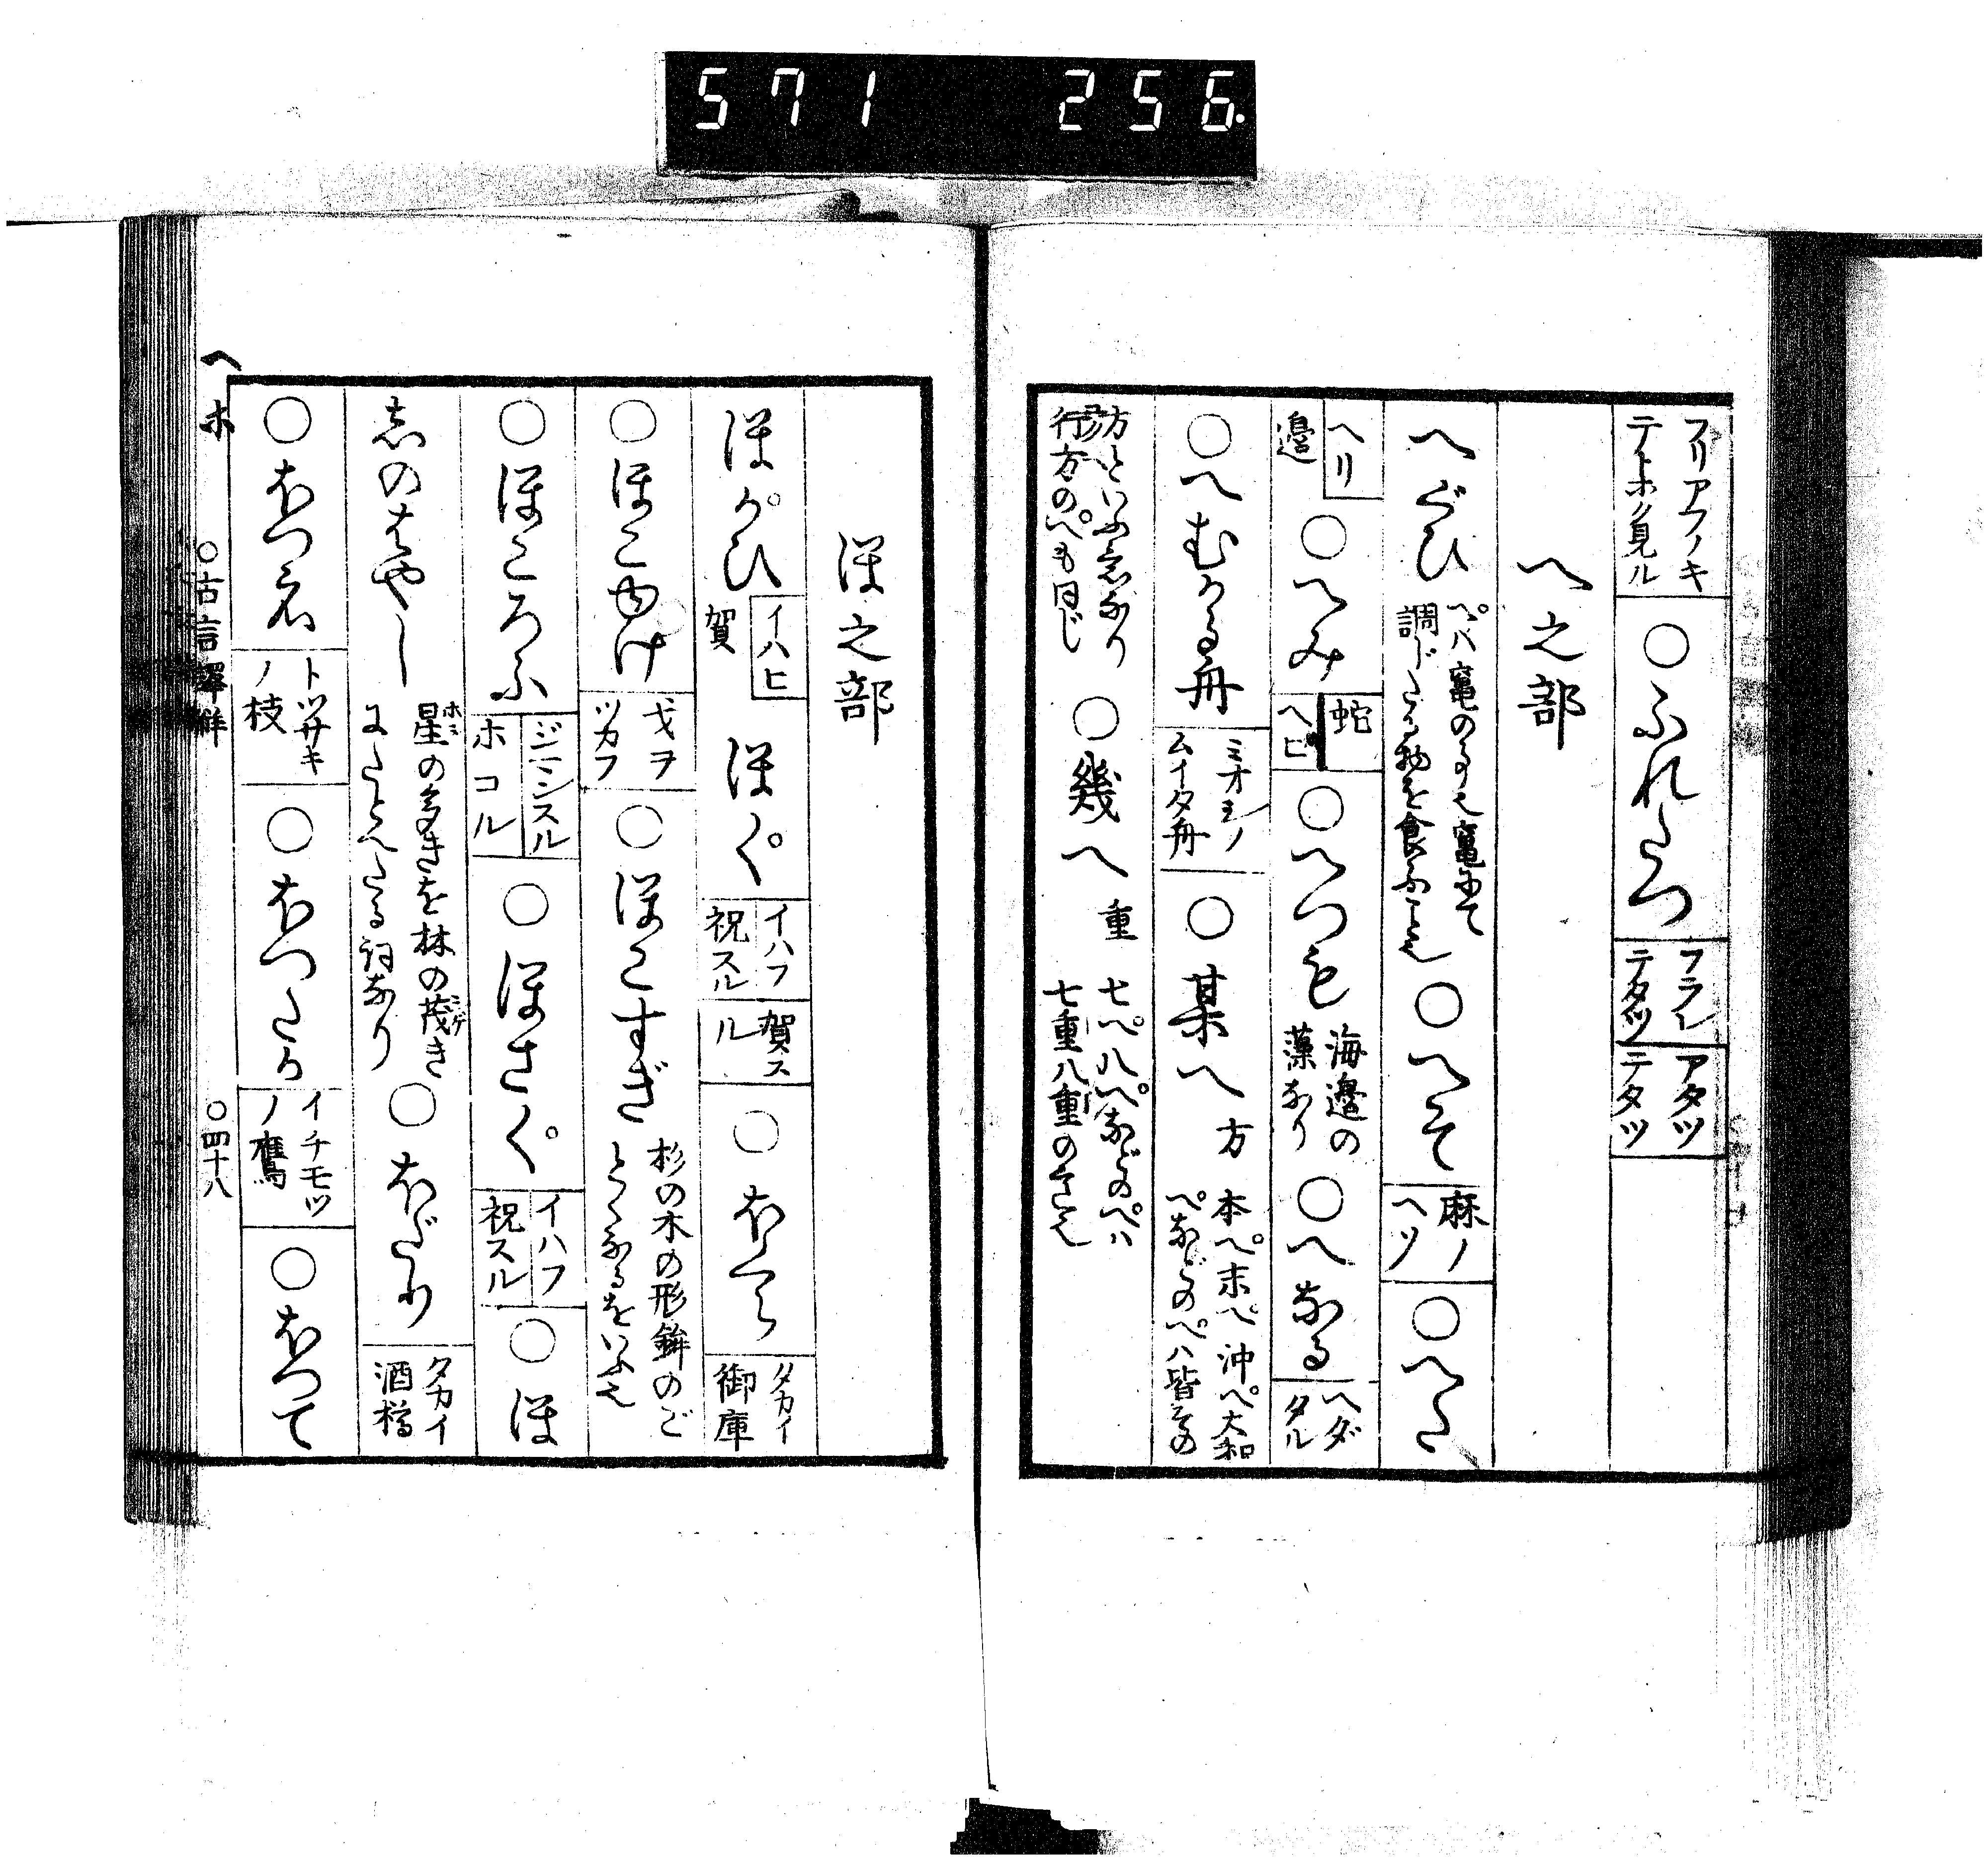 571 256.
フリアフノキ
テトホク見ル
○ふれたつ
フライ
テタツ
アタツ
テタツ
へ之部
へぐひ
ペハ竈のうへ竈にて
調じたる物を食ふこと也
○へそ
麻ノ
ヘソ
○へた
ヘリ
邊
○へみ
蛇
ヘビ
○へつも
海邊の
藻なり
○へなる
ヘダ
タル
○へむかる舟
ムイタ舟
○某へ
方
本ペ末ペ沖ペ大和
ペなどのペハ皆その
方といふ意なり
行方のペも同じ
○幾へ
重
七ペ八ペなどのペハ
七重八重のこと也
ほ之部
ほかひ
イハヒ
賀
ほく
イハフ
祝スル
賀ス
ル
○ほくら
タカイ
御庫
○ほこゆけ
戈ヲ
ツカフ
○ほこすぎ
杉の木の形鉾のご
とくなるをいふ也
○ほころふ
ジマンスル
ホコル
○ほさく
イハフ
祝スル
○ほ
しのはやし
星の多きを林の茂き
にたとへたる詞なり
○ほだり
タカイ
酒樽
○ほつえ
トツサキ
ノ枝
○ほつたか
イチモツ
ノ鷹
○ほつて
ヘ ホ
○古言譯解
○四十八